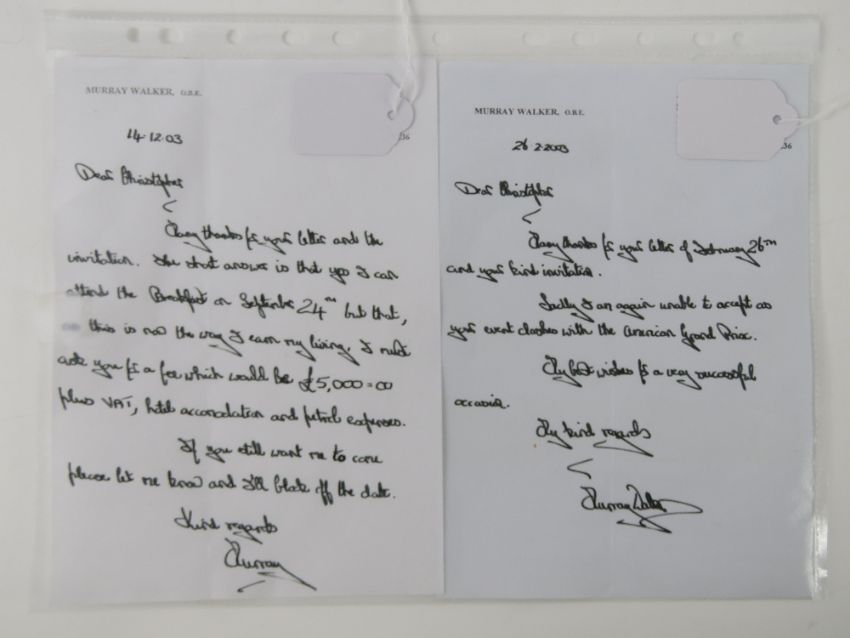 MURRAY WALKER, O.B.E.
36
14.12.03
Dear Christopher
Many thanks for your letter and the
invitation. The short answer is that yes I can
attend the Breakfast on September 24th but that,
as this is now the way I earn my living, I must
ask you for a fee which would be £5,000=00
plus VAT, hotel accomodation and petrol expenses.
If you still want me to come
please let me know and I'll block off the date.
Kind regards
Murray
MURRAY WALKER, O.B.E.
36
26.2.2003
Dear Christopher
Many thanks for your letter of February 26th
and your kind invitation.
Sadly I am again unable to accept as
your event clashes with the American Grand Prix.
My best wishes for a very successful
occasion.
My kind regards
Murray Walker